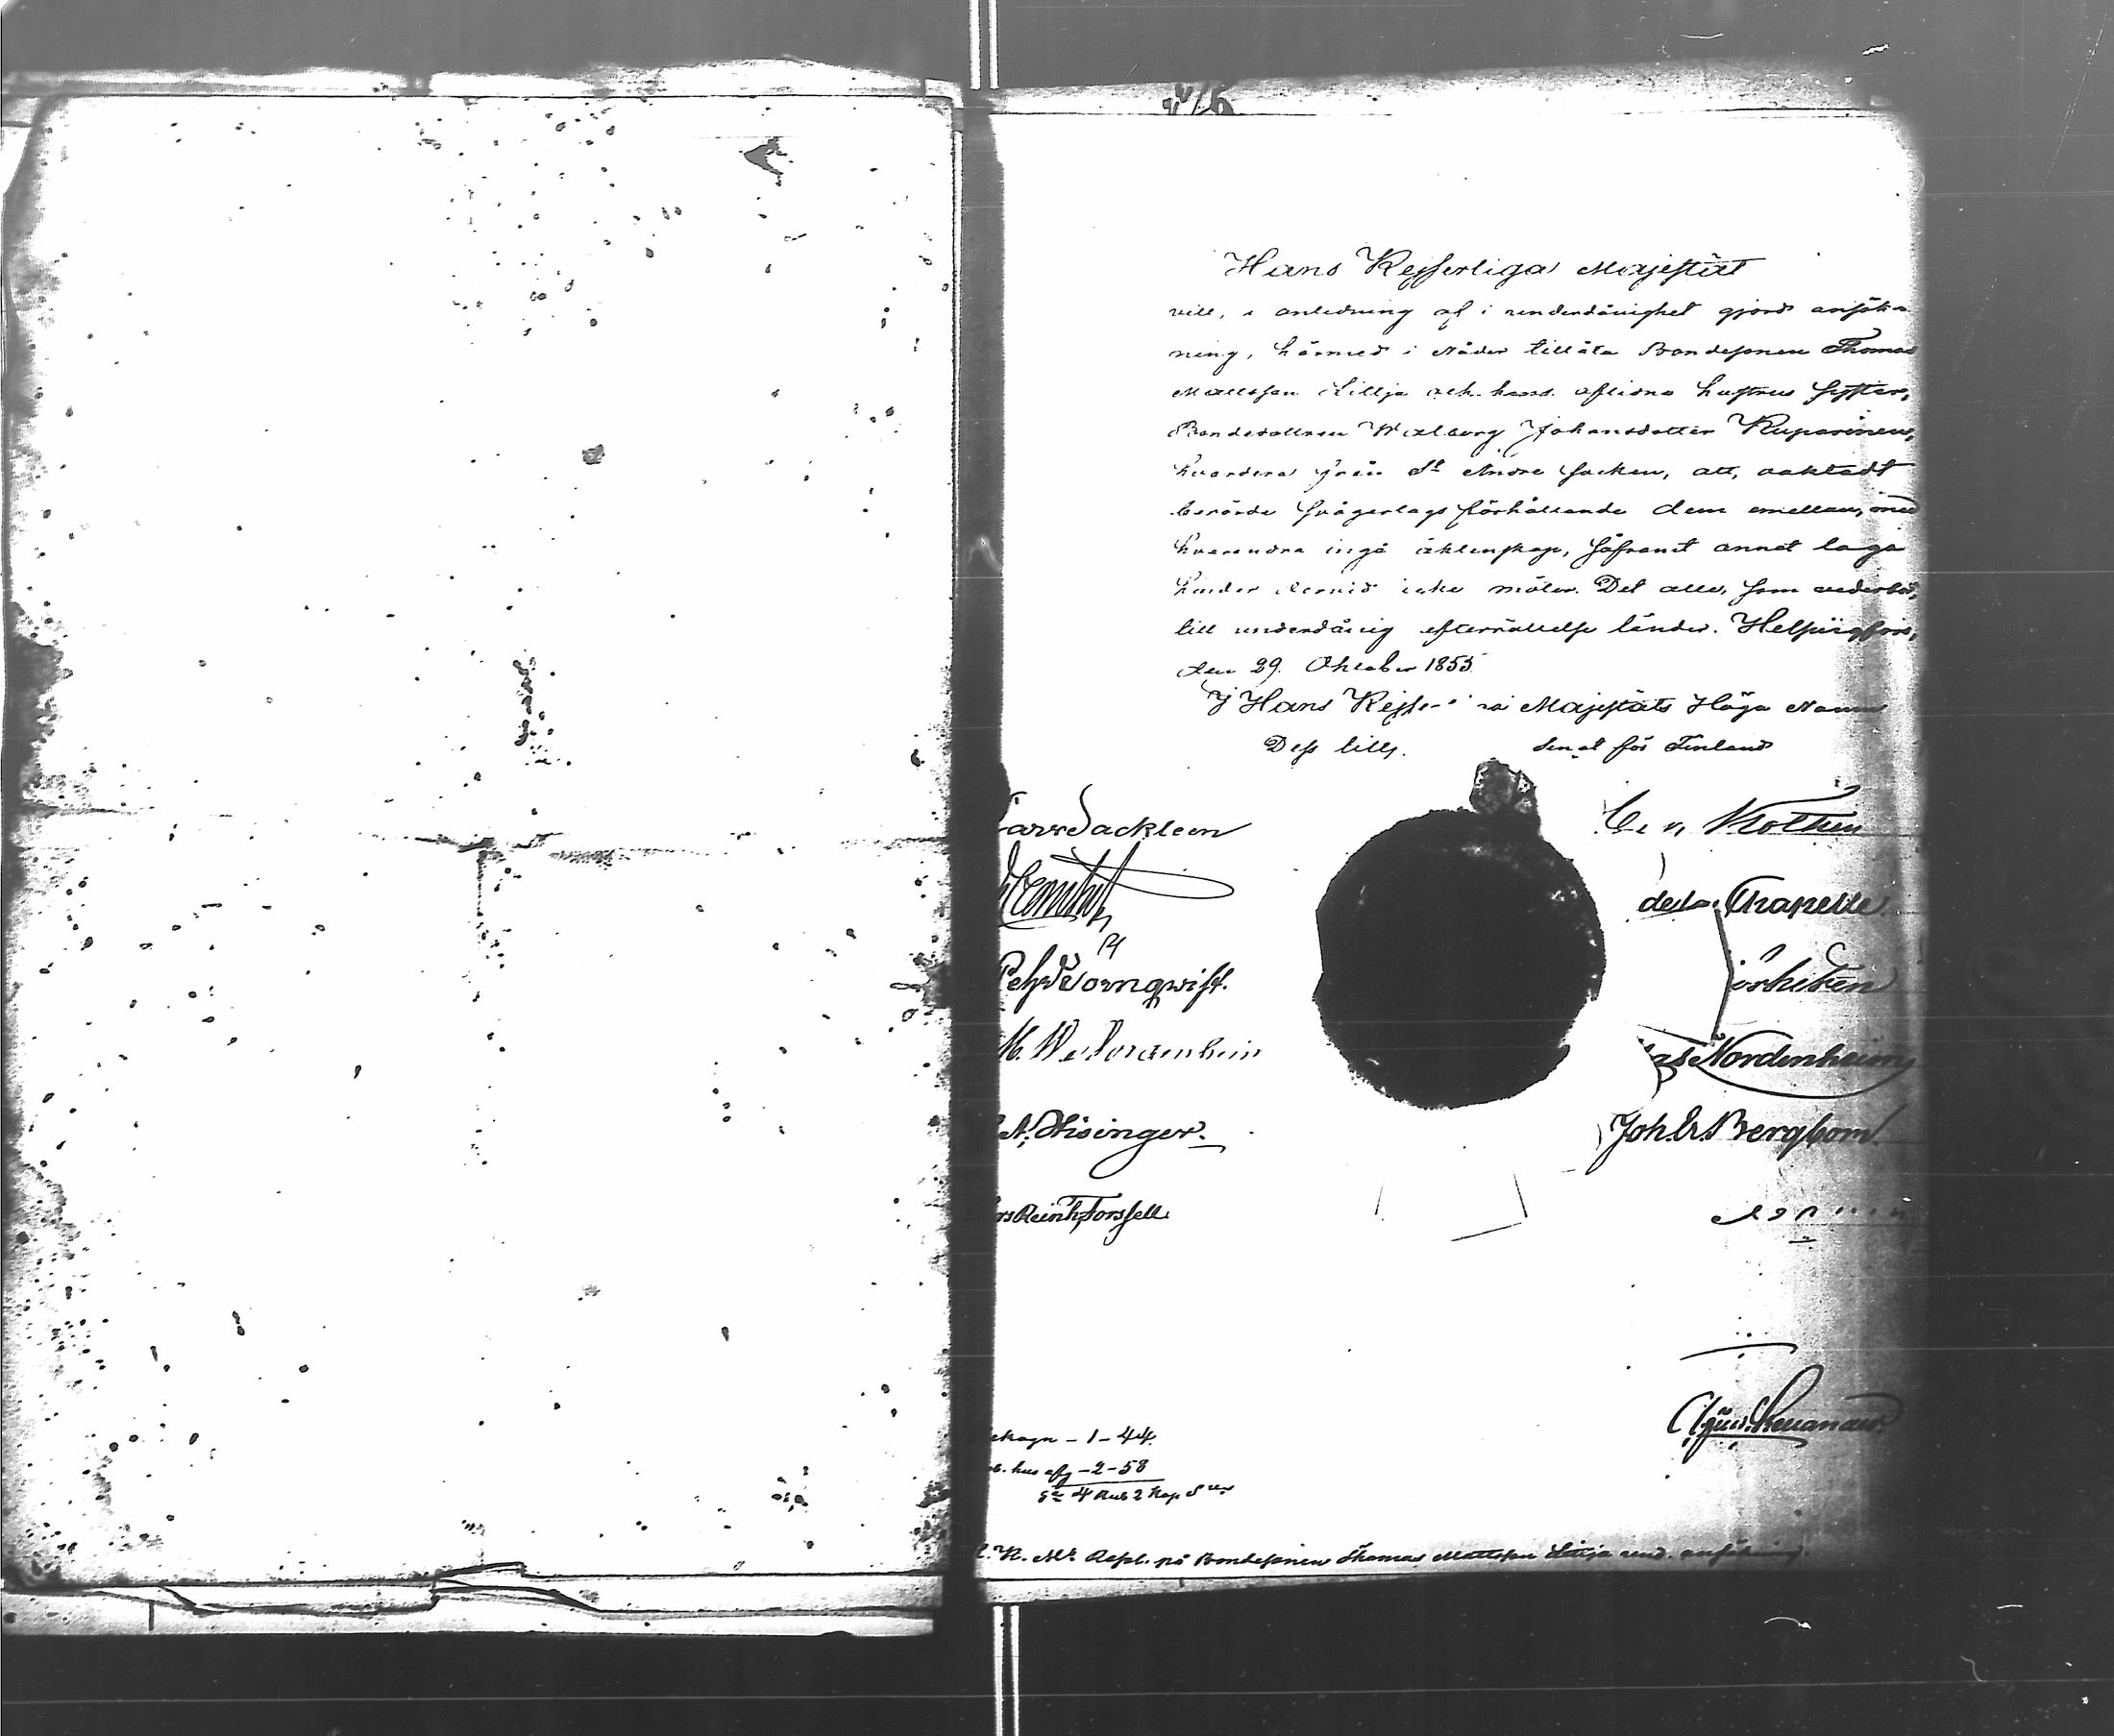 Hans Kejserliga Majestät
vill, i anledning af i underdånighet gjord ansök-
ning, härmed i Nåder tillåta Bondesonen Thomas
Mattsson Lillja och hans aflidna hustrus syster,
Bondedottren Walborg Johansdotter Kuparinen,
hvardera från St Andre socken, att, oaktadt
berörde svågerlags förhållande dem emellan, med
hvarandra ingå äktenskap, såframt annat laga
hinder dervid icke möter. Det alle, som vederbör,
till underdånig efterrättelse länder. Helsingfors,
den 29. Oktober 1855
I Hans Kejse Majestäts Höga Namn
Dess tills. Senat för Finland
Sackleen C. v. Kothen
de la Chapelle
Pehr Törnqvist.
Nordenheim
Hisinger. Joh. G. Bergbom.
Reinh. Forssell
1-44.
afg - 2-58
4 Rub 2 Kop Sr
K. M:ts Resol. på Bondesonen Thomas Mattsson Lillja und. ansökning.